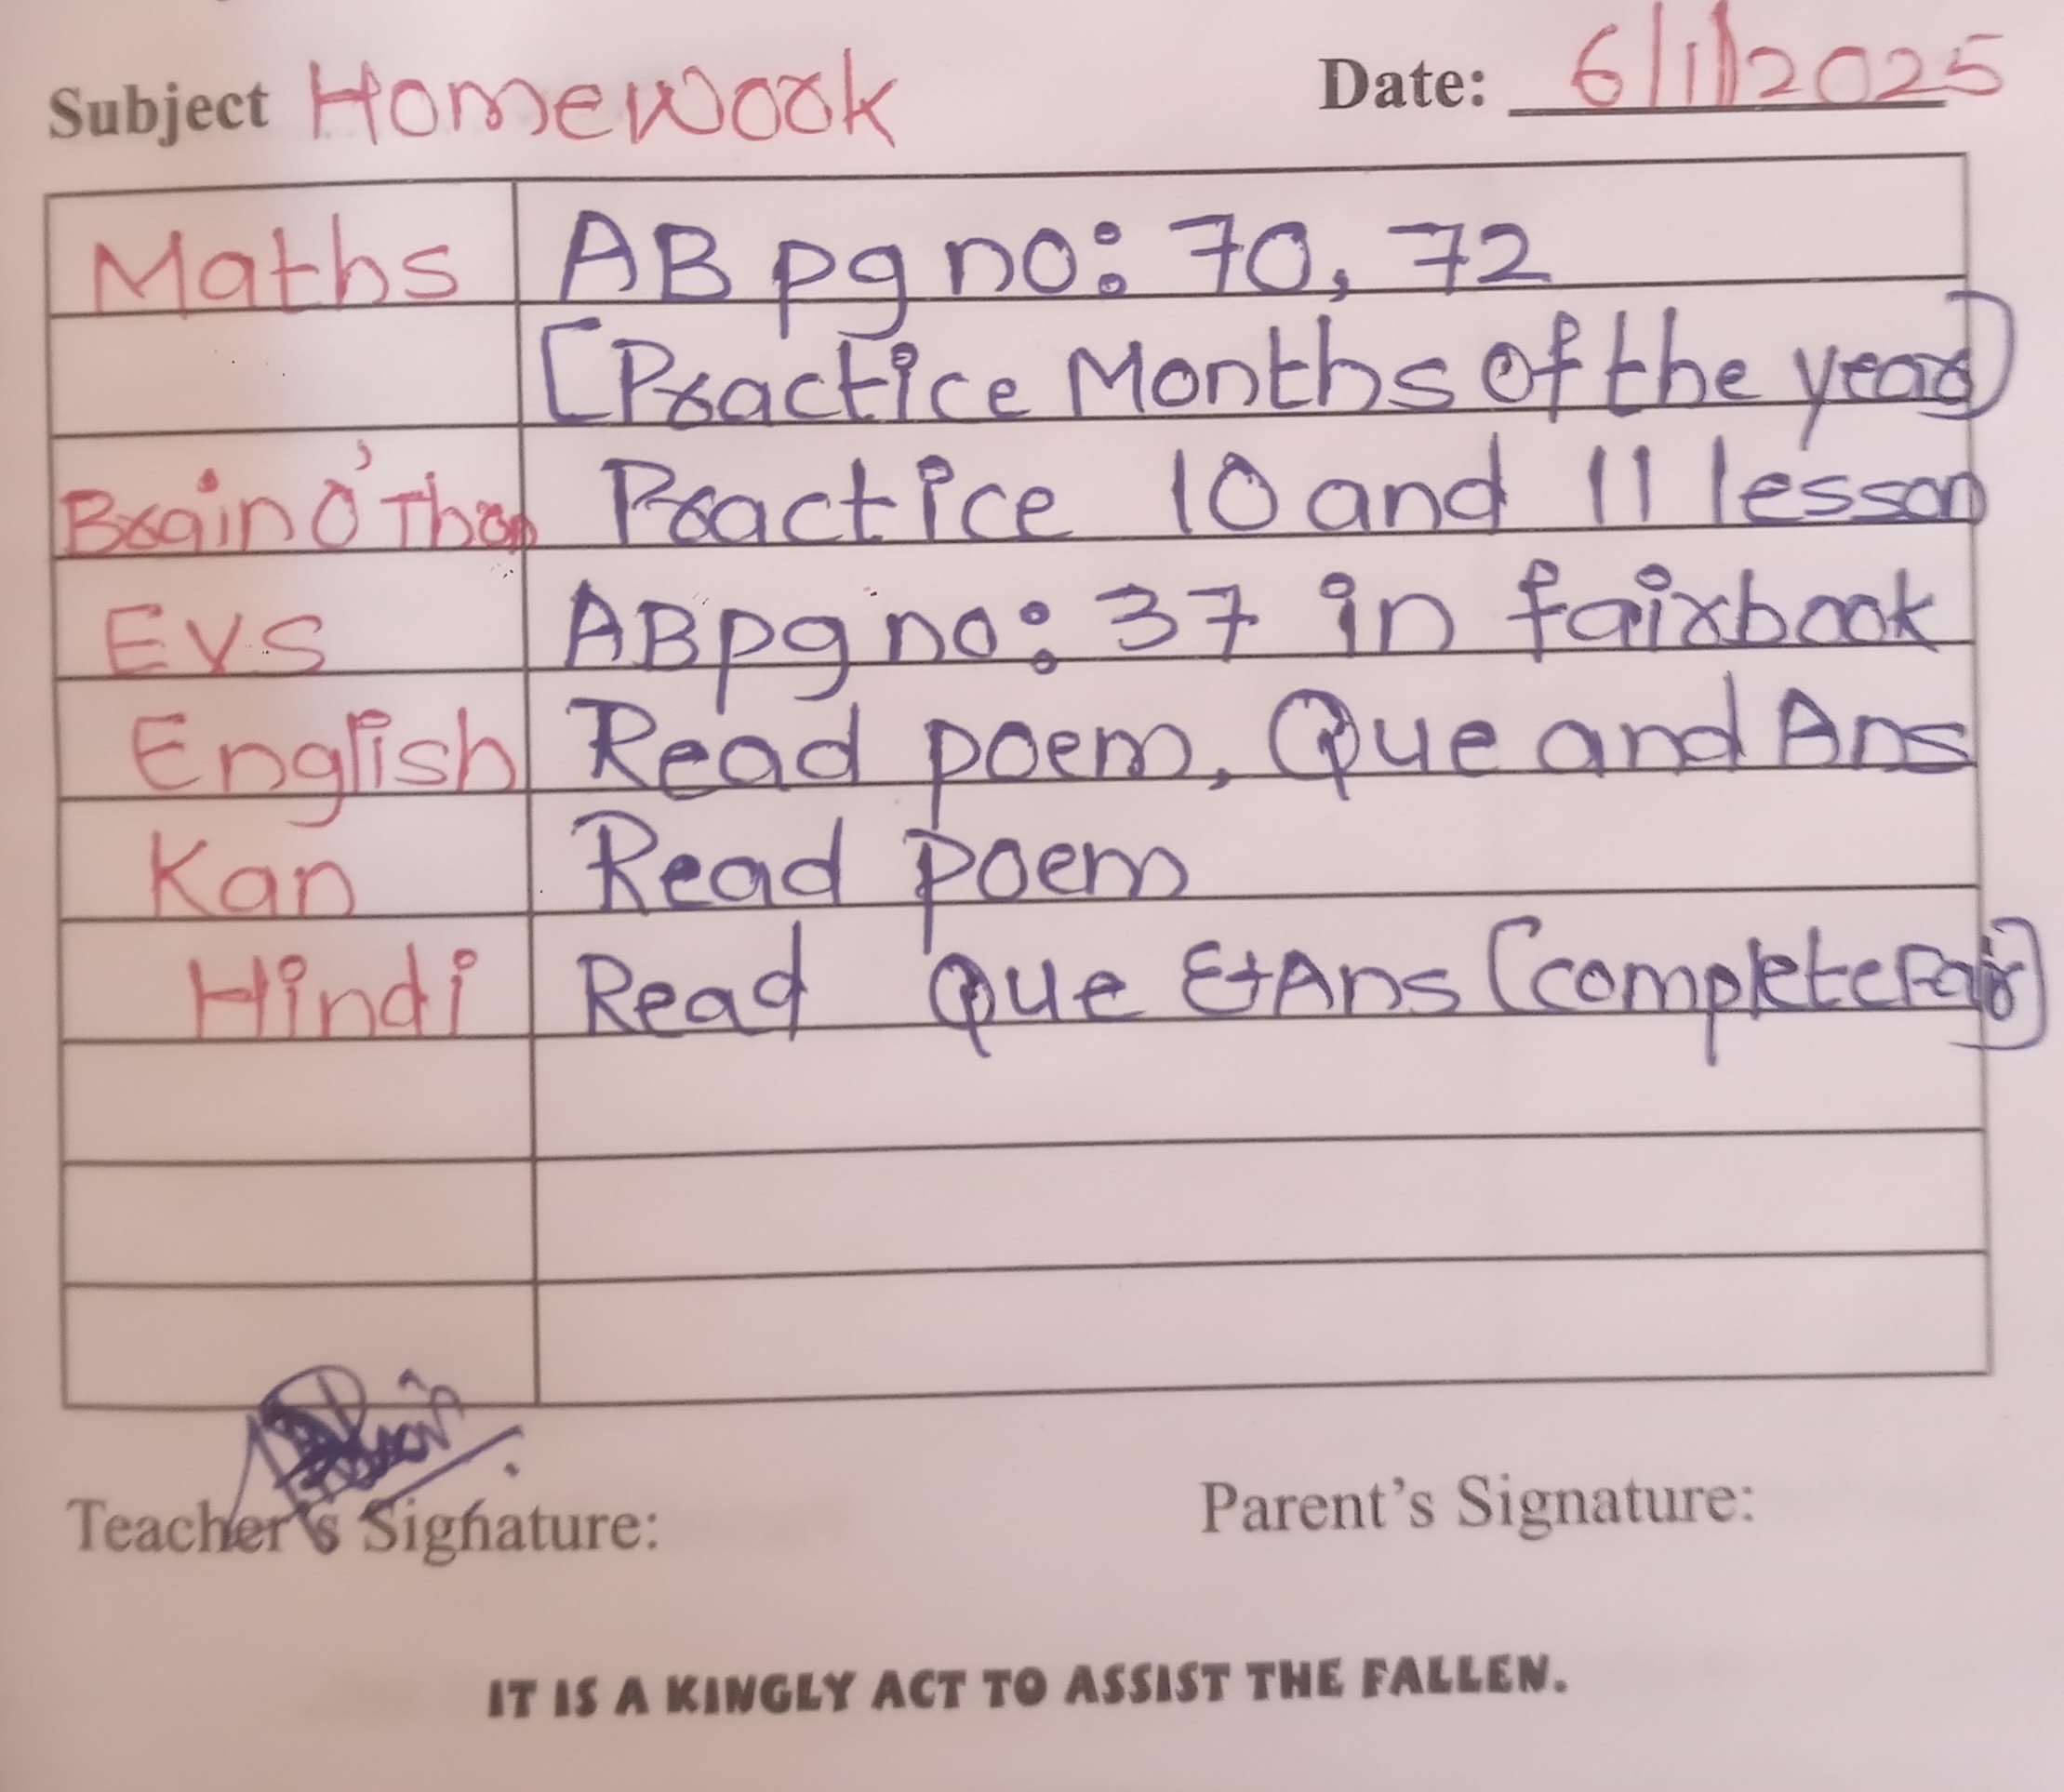 Subject Homework Date: 6/1/2025
Maths ABpg no: 70, 72
[Practice Months of the year]
Brain O' Thon Practice 10 and 11 lesson
EVS ABpg no: 37 in fairbook
English Read poem, Que and Ans
Kan Read poem
Hindi Read Que & Ans [complete Fair]
Teacher's Signature: Parent's Signature:
IT IS A KINGLY ACT TO ASSIST THE FALLEN.